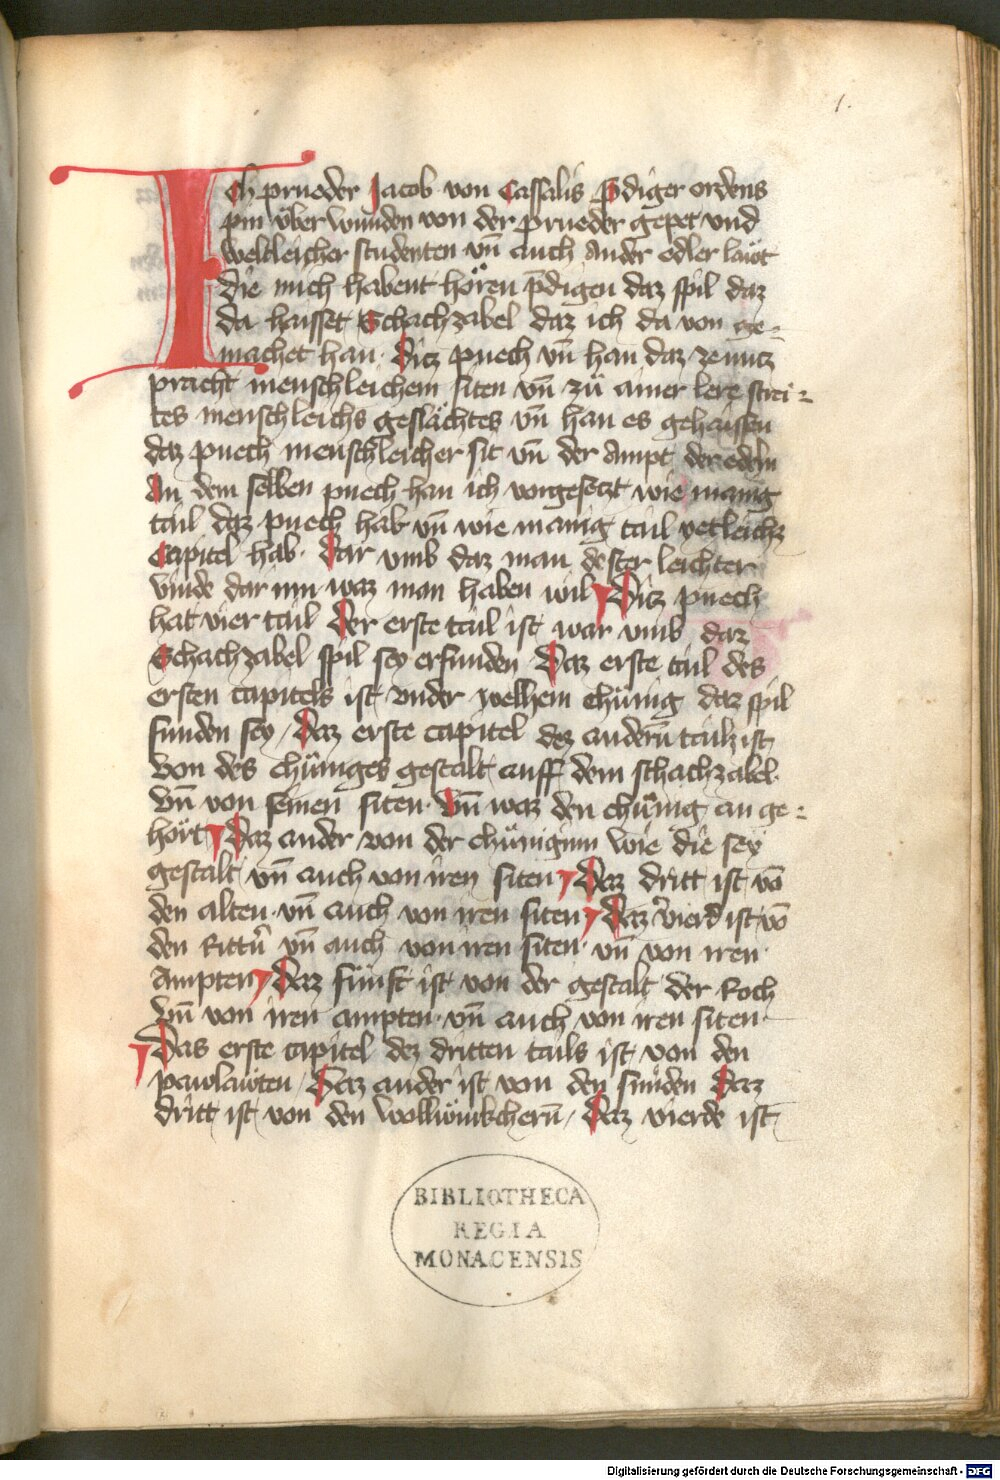 1.
Ich prueder Jacob von Cassalis p̄diger ordens
pin vͤber wunden von der prueder gepet vnd
weltleicher studenten vn̄ auch ander edler laẅt
die mich habent hoͤren p̄digen daz spil daz
da haisset Schachzabel daz ich da von ge-
machet han. Ditz puech vn̄ han daz ze nutz
pracht menschleichem siten vn̄ zů ainer lere strei-
tes menschleichs geslächtes vn̄ han es gehaissen
daz puech menschleicher sit vn̄ der ampt der edeln
An dem selben puech han ich vorgesetzt wie manig
tail daz puech hab vn̄ wie manig tail yetleichz
Capitel hab. Dar vmb daz man dester leichter
vinde dar inn waz man haben wil Ditz puech
hat vier tail Der erste tail ist war vmb daz
Schachzabel spil sey erfunden Daz erste tail des
ersten capitels ist vnder welhem chünig daz spil
funden sey / Daz erste capitel dez andern̄ tailz ist
von des chüniges gestalt auff dem schachzabel.
vn̄ von seinen siten. Vn̄ waz den chünig an ge-
hört Daz ander von der chüniginn wie die sey
gestalt vn̄ auch von iren siten Daz dritt ist vō
den alten. vn̄ auch von iren siten Daz vierd ist vō
den Rittn̄ vn̄ auch von iren siten. vn̄ von iren.
Ampten Daz fünft ist von der gestalt der Roch
vn̄ von iren ampten. vn̄ auch von iren siten.
Das erste capitel dez dritten tails ist von den
pawlaẅten / Daz ander ist von den smiden Daz
dritt ist von den wollwürkchern̄ / Daz vierde ist
BIBLIOTHECA
REGIA
MONACENSIS
Digitalisierung gefördert durch die Deutsche Forschungsgemeinschaft - DFG